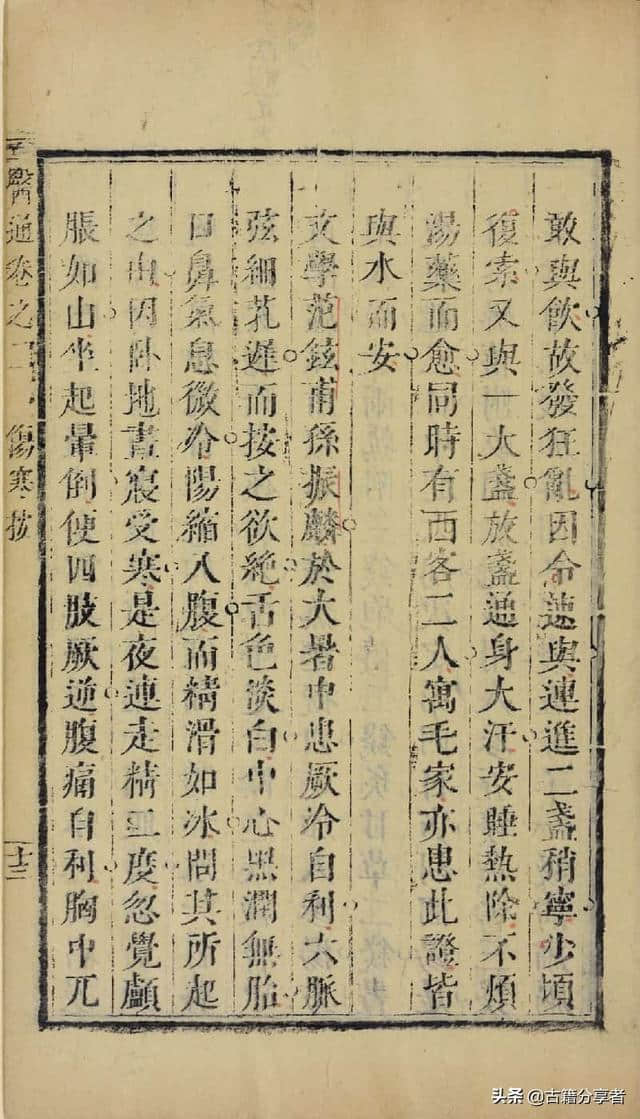 敢與飲故發狂亂因令速與連進二盞稍寧少頃
復索又與一大盞放盞通身大汗安睡熱除不煩
湯藥而愈同時有西客二人寓毛家亦患此證皆
與水而安
文學范鉉甫孫振麟於大暑中患厥冷自利六脈
弦細芤遲而按之欲絕舌色淡白中心黑潤無胎
口鼻氣息微冷陽縮入腹而精滑如冰問其所起
之由因臥地晝寢受寒是夜連走精二度忽覺顱
脹如山坐起暈倒便四肢厥逆腹痛自利胸中兀
醫通卷之二 傷寒
十三
头条 @古籍分享者